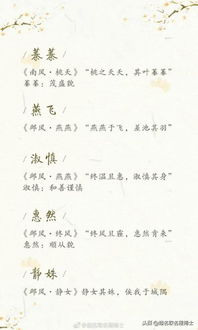 / 蓁蓁 /
《南风·桃夭》“桃之夭夭，其叶蓁蓁”
蓁蓁：茂盛貌
/ 燕飞 /
《邶风·燕燕》“燕燕于飞，差池其羽”
/ 淑慎 /
《邶风·燕燕》“终温且惠，淑慎其身”
淑慎：和善谨慎
/ 惠然 /
《邶风·终风》“终风且霾，惠然肯来”
惠然：顺从貌
/ 静姝 /
《邶风·静女》静女其姝，俟我于城隅